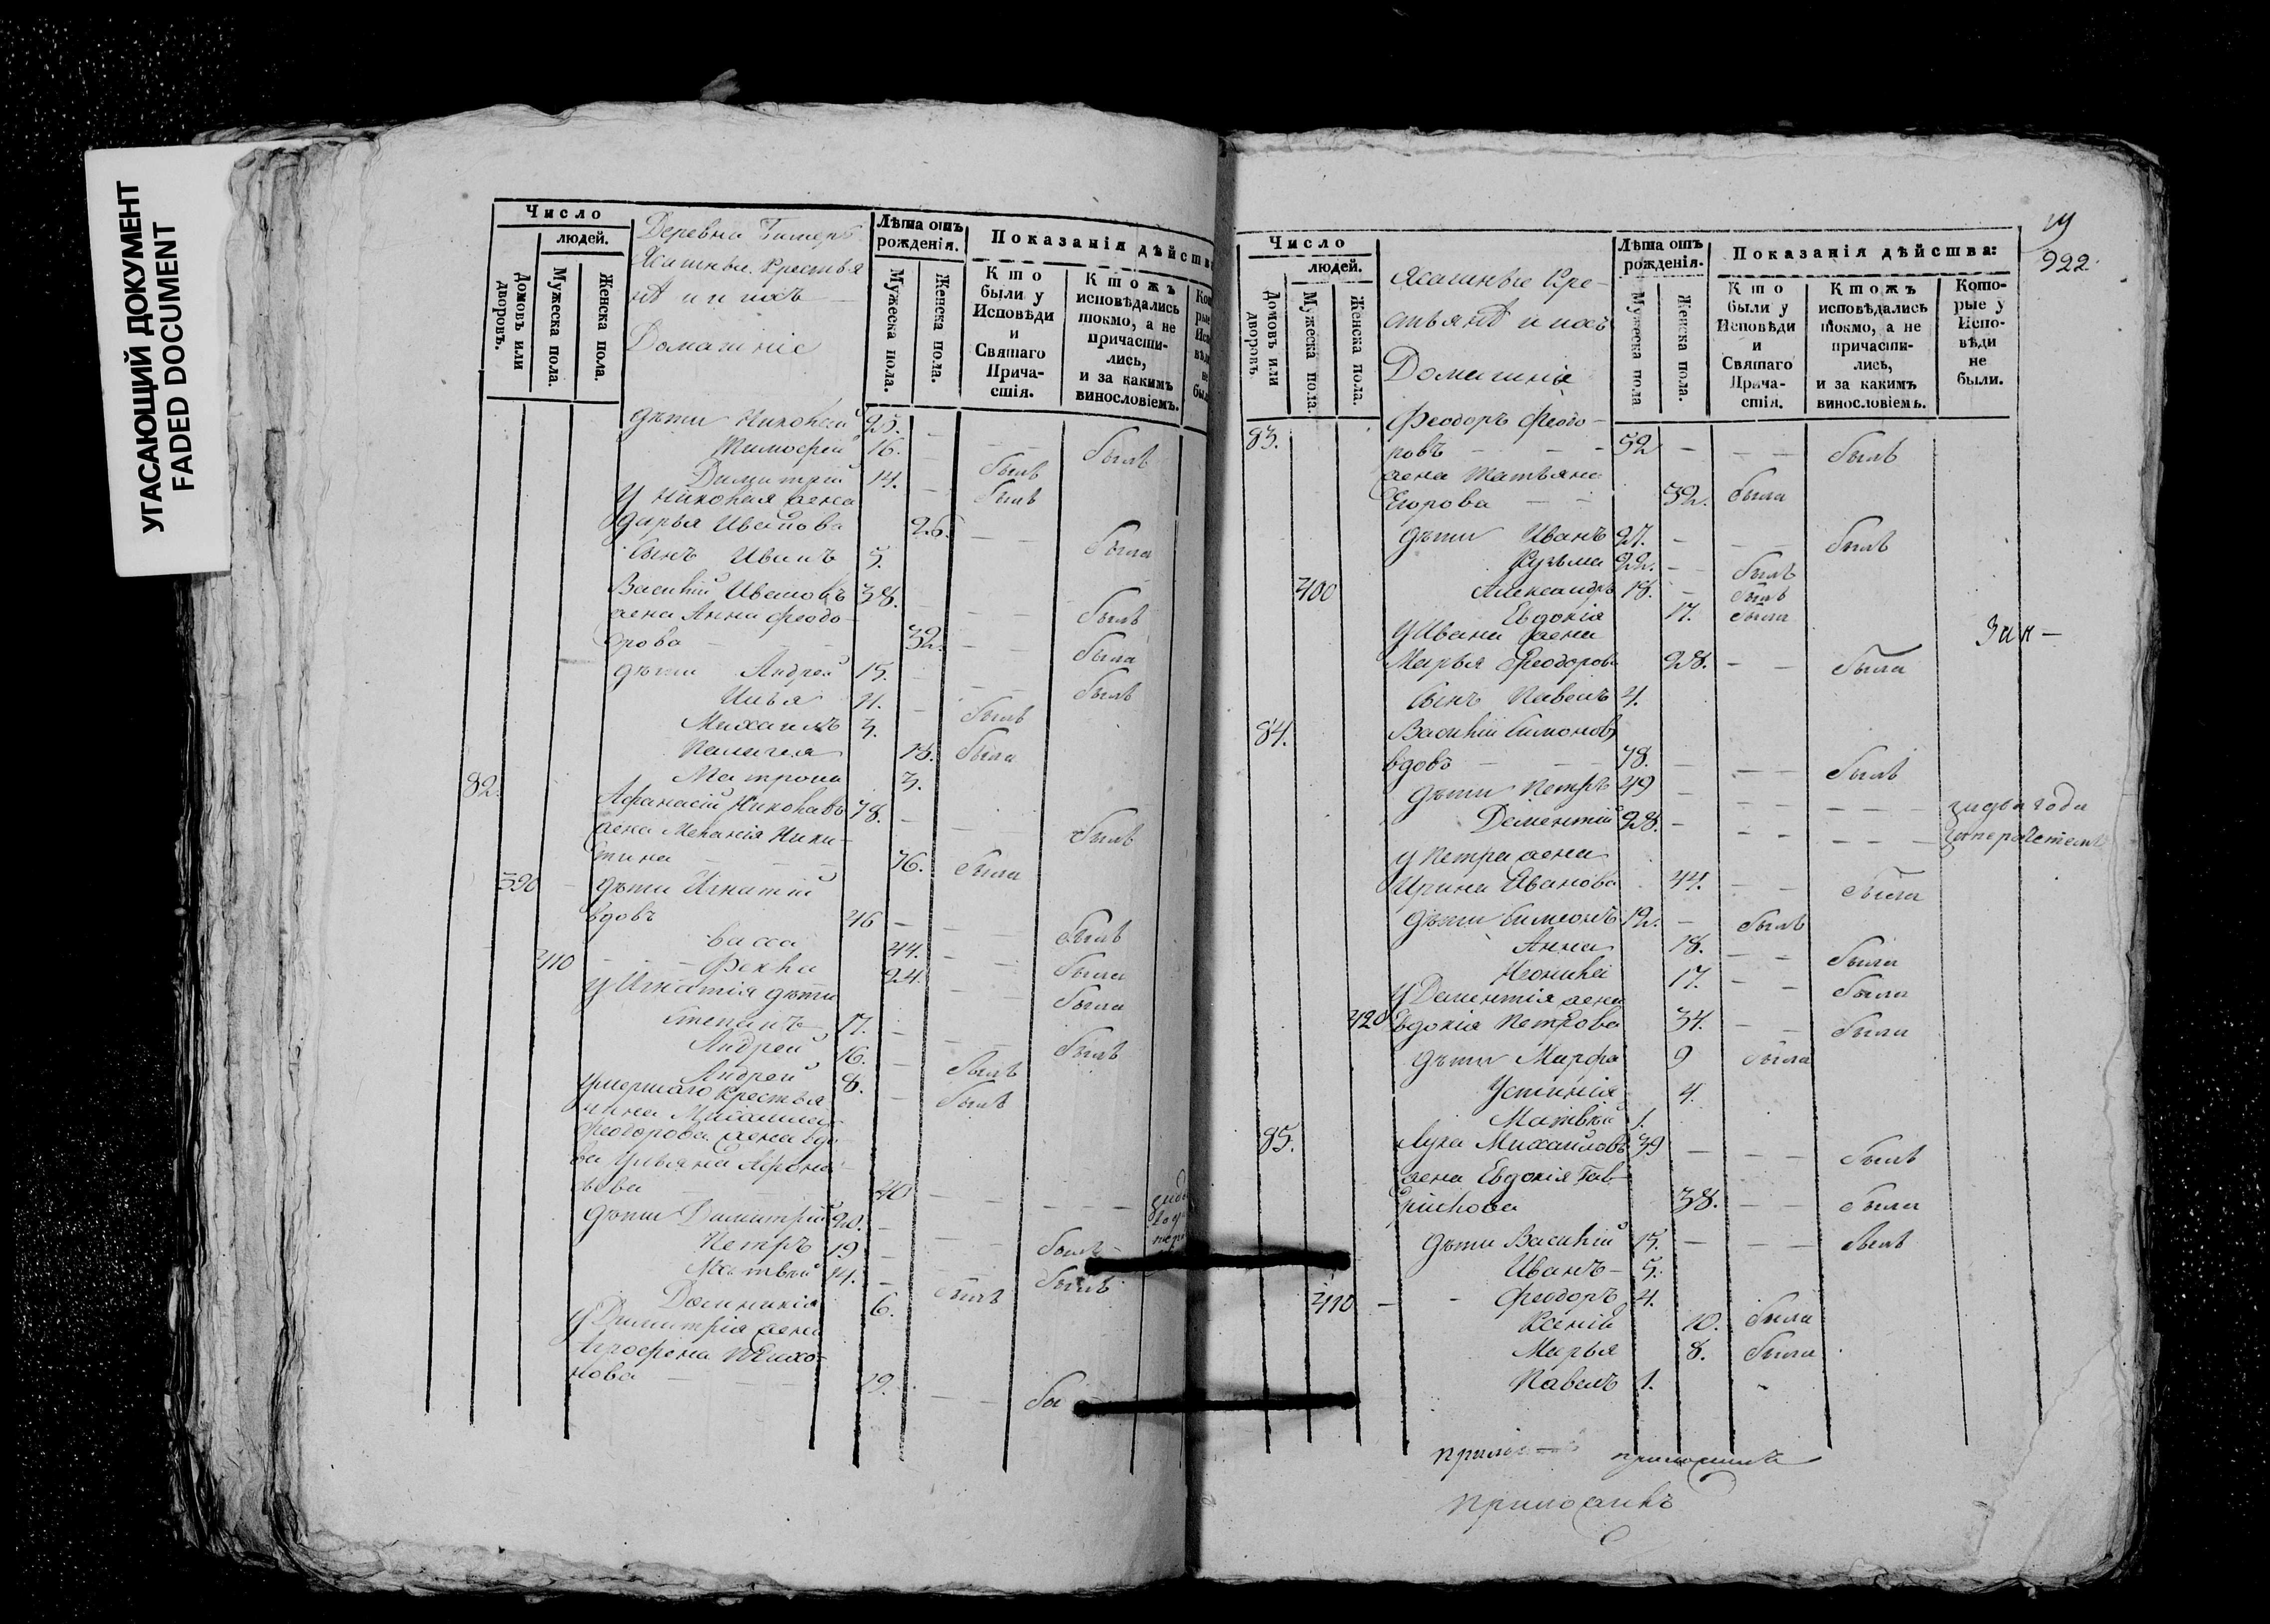 УГАСАЮЩИЙ ДОКУМЕНТ
FADED DOCUMENT
Число
людей.
Домовъ или дворовъ.
Мужеска пола.
Женска пола.
Деревни
Ясашные крестья
нѣ и ихъ
Домашніе
Лѣта отъ рожденія.
Мужеска пола.
Женска пола.
Показанія дѣйства
Кто были у Исповѣди и Святаго Причастія.
Ктожъ исповѣдались токмо, а не причастились, и за какимъ винословіемъ.
дѣти Николай 25. — — — былъ
Тимофей 16. — былъ
Димитрій 14. — былъ
У Николая жена
Дарья Иванова 26. — — была
Сынъ Иванъ 5.
Василій Ивановъ 38. — — былъ
жена Анна Феодо-
рова — — 32. — — была
дѣти Андрей 15. — — былъ
Илья 11. — былъ
Михаилъ 3.
Пелагея 13. была
Матрона 3.
82. Афанасій Николаевъ 78. — — былъ
жена Меланія Ники-
тина — — 76. была
390 дѣти Игнатій
вдовъ 46 — — былъ
Васса 44. — — была
410 — — Фекла 24. — — была
У Игнатія дѣти
Степанъ 17. — — — былъ
Андрей 16. — былъ
Андрей 8. — былъ
умершаго крестья
нина
Феодорова жена вдо
ва Ульяна Афонась
ьева 40 — — — —
дѣти Димитрій 20. — — былъ
Петръ 19 — былъ
Матвей 14. — былъ
Домникія 6.
У Димитрія жена
Агрофена Тихо-
нова — — — 19. — —
922.
Число
людей.
Домовъ или дворовъ.
Мужеска пола.
Женска пола.
Ясашные Кре-
стьянѣ и ихъ
Домашніе
Лѣта отъ рожденія.
Мужеска пола
Женска пола.
Показанія дѣйства:
Кто были у Исповѣди и Святаго Причастія.
Ктожъ исповѣдались токмо, а не причастились, и за какимъ винословіемъ.
Которые у Исповѣди не были.
83. Феодоръ Феодо-
ровъ — — — 52 — — — былъ
жена Татьяна
Егорова — — 52. была
дѣти Иванъ 27. — — — былъ
Кузьма 22. — — былъ
400 Александръ 18. — былъ
Евдокія 17. была
У Ивана жена
Марья Феодорова 28. — — была
Сынъ Павелъ 4.
84. Василій Симоновъ
вдовъ — — — 78. — — — былъ
дѣти Петръ 49 — — — — — — за два года
Дементій 28. — — — — — —
у Петра жена
Ирина Иванова 44. — — была
дѣти Симеонъ 12. — былъ
Анна 18. — — была
17. — — была
У Дементія жена
420 Евдокія Петрова 34. — — была
дѣти Марфа 9 была
Устинія 4.
Матвѣй 1.
85. Лука Михайловъ 39 — — — былъ
жена Евдокія Гав-
рилова 38. — — была
дѣти Василій 15. — — — былъ
Иванъ — 5.
410 — — Феодоръ 4.
Ксенія 10. была
Марья 8. была
Павелъ 1.